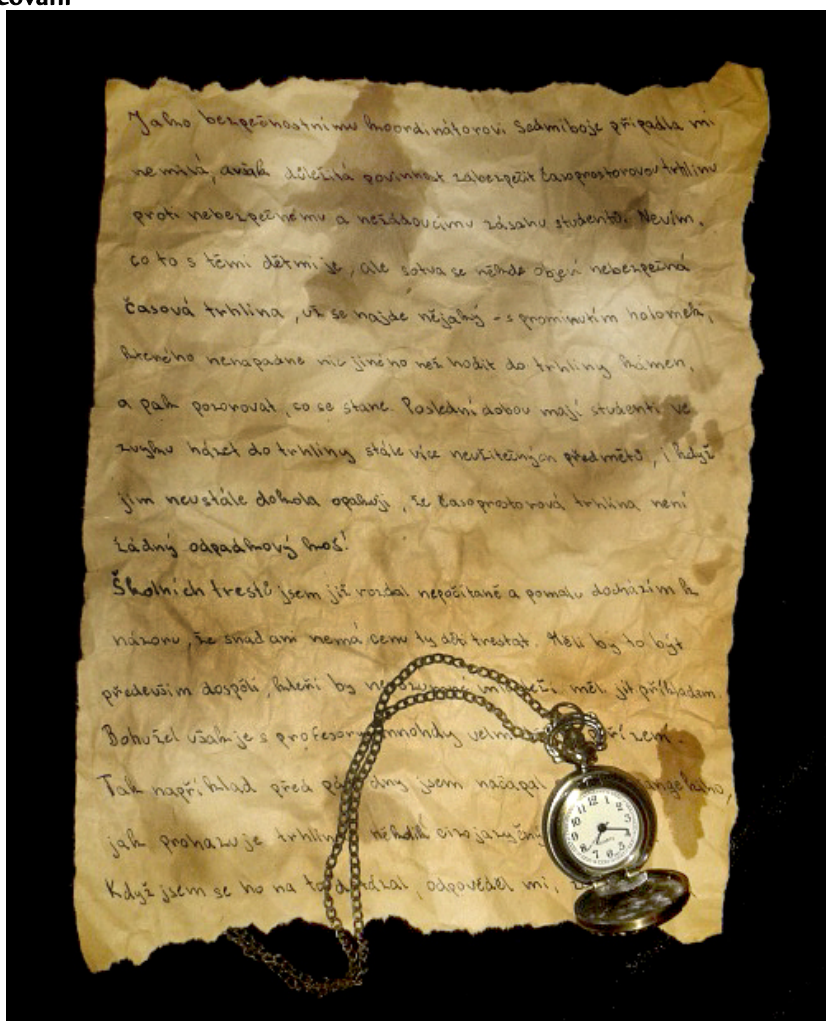 cování
Jako bezpečnostnímu koordinátorovi Sedmiboje připadla mi
nemilá, avšak důležitá povinnost zabezpečit časoprostorovou trhlinu
proti nebezpečnému a nežádoucímu zásahu studentů. Nevím,
co to s těmi dětmi je, ale sotva se někde objeví nebezpečná
časová trhlina, už se najde nějaký - s prominutím holomek,
kterého nenapadne nic jiného než hodit do trhliny kámen,
a pak pozorovat, co se stane. Poslední dobou mají studenti ve
zvyku házet do trhliny stále více neužitečných předmětů, i když
jim neustále dokola opakuji, že časoprostorová trhlina není
žádný odpadkový koš!
Školních trestů jsem již rozdal nepočítaně a pomalu docházím k
názoru, že snad ani nemá cenu ty děti trestat. Měli by to být
především dospělí, kteří by měli jít příkladem.
Bohužel však je s profesory mnohdy
Tak například před dny jsem načapal
jak prohazuje několik cizojazyčný
Když jsem se ho na to dotázal, odpověděl mi,
12 1 2 3 5 6 7 8 9 10 11